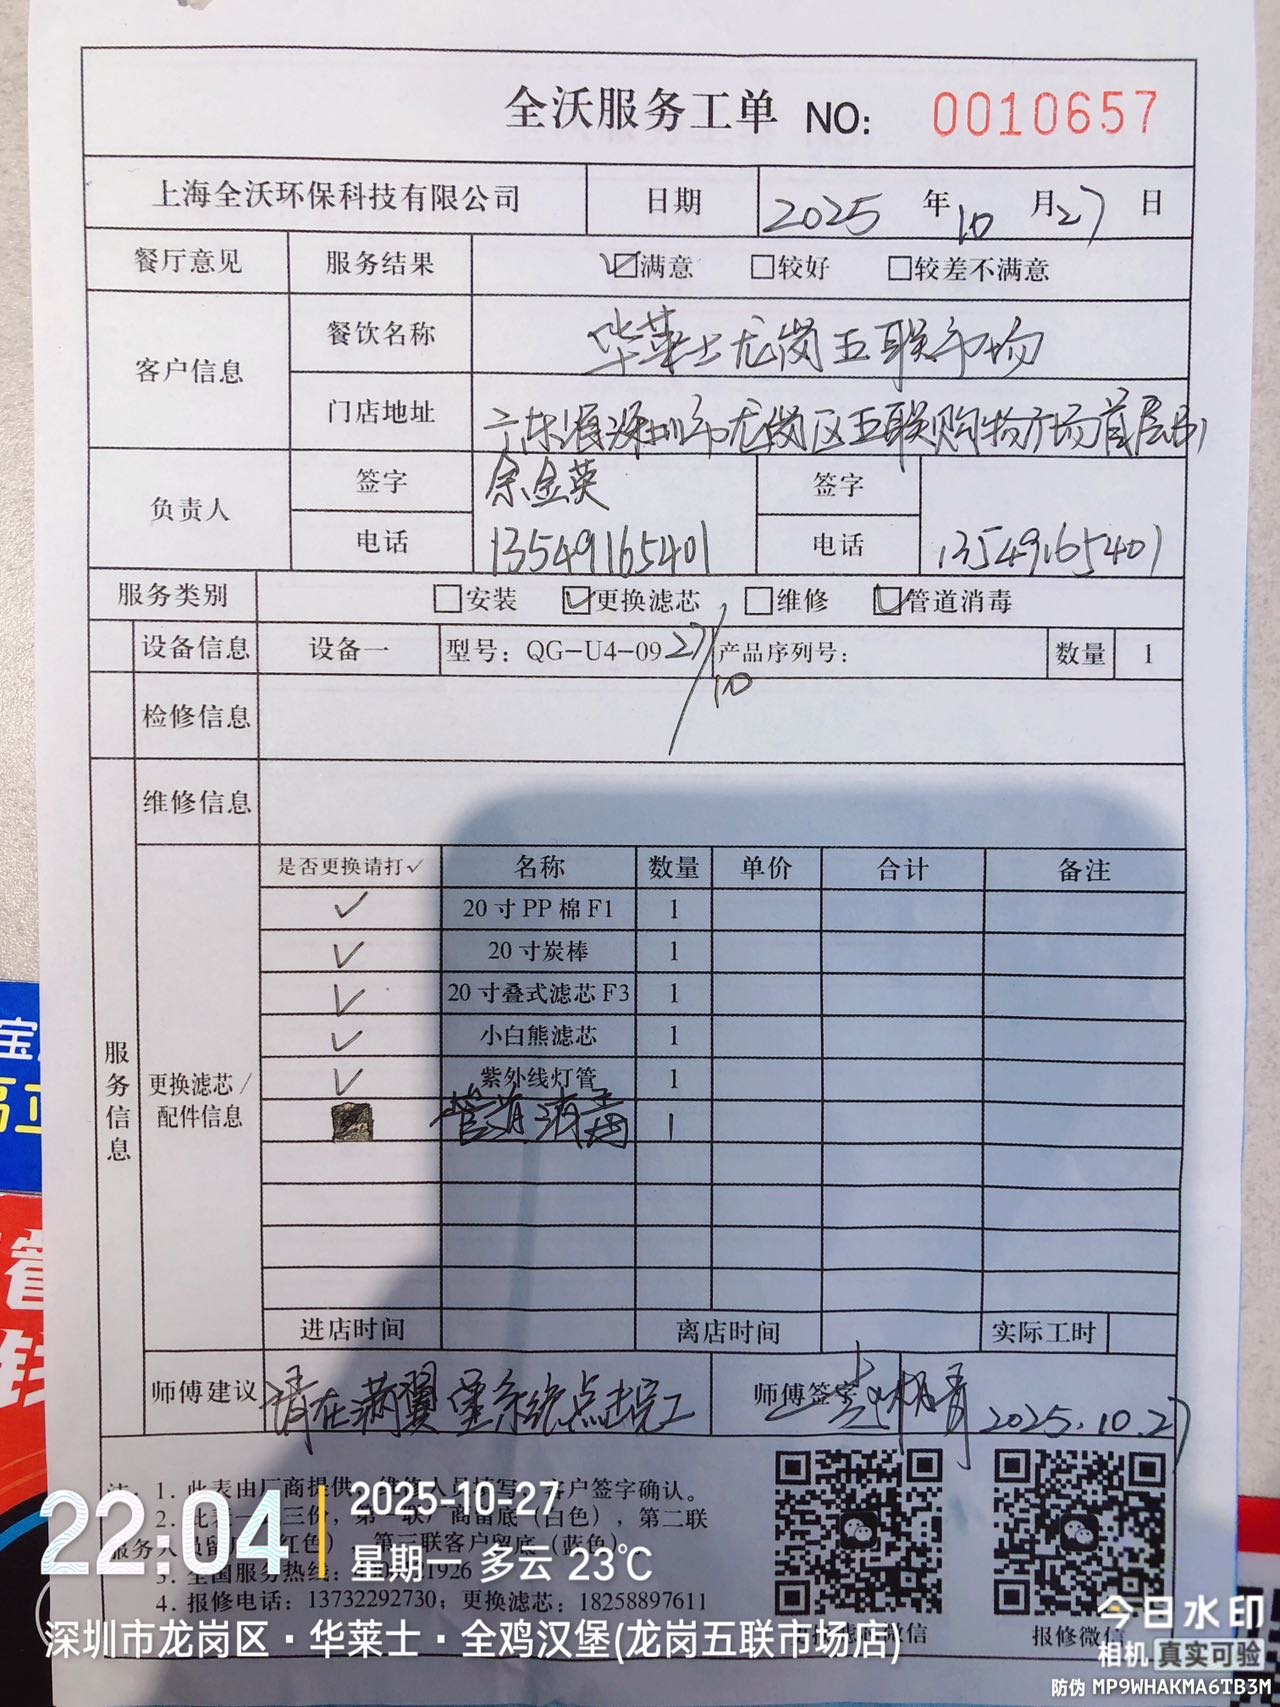 全沃服务工单 NO: 0010657
上海全沃环保科技有限公司 日期 2025 年 10 月 27 日
餐厅意见 服务结果 ☑满意 □较好 □较差不满意
客户信息 餐饮名称 华莱士龙岗五联市场
门店地址 广东省深圳市龙岗区五联购物广场首层
负责人 签字 余金英 签字
电话 13549165401 电话 13549165401
服务类别 □安装 ☑更换滤芯 □维修 ☑管道消毒
设备信息 设备一 型号: QG-U4-09 27/10 产品序列号: 数量 1
检修信息
维修信息
服务信息
更换滤芯/配件信息
是否更换请打✓ 名称 数量 单价 合计 备注
✓ 20寸PP棉F1 1
✓ 20寸炭棒 1
✓ 20寸叠式滤芯F3 1
✓ 小白熊滤芯 1
✓ 紫外线灯管 1
管道消毒 1
进店时间 离店时间 实际工时
师傅建议 请在满翼堡系统点击完工 师傅签字 2025.10.27
注: 1. 此表由厂商提供,维修人员填写,客户签字确认。
2. 此表一式三份,第一联厂商留底(白色),第二联
服务人员留底(红色),第三联客户留底(蓝色)。
3. 全国服务热线: 1926
4. 报修电话: 13732292730; 更换滤芯: 18258897611
微信 报修微信
22:04 2025-10-27
星期一 多云 23℃
深圳市龙岗区·华莱士·全鸡汉堡(龙岗五联市场店)
今日水印
相机 真实可验
防伪 MP9WHAKMA6TB3M
宝